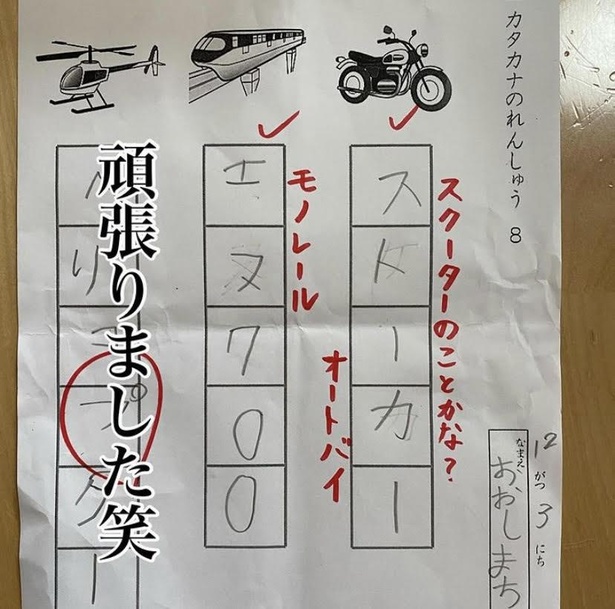 カタカナのれんしゅう 8
12がつ3にち
なまえ
おおしまち
スクーターのことかな?
スKーカー
オートバイ
モノレール
エヌ700
リコプター
頑張りました笑